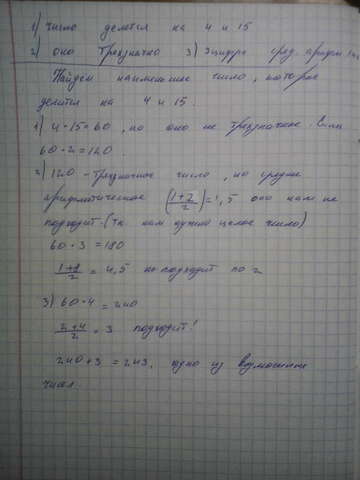 1) число делится на 4 и 15
2) оно трёхзначно 3) 3 цифра сред. арифм
Найдём наименьшее число, которое
делится на 4 и 15.
1) 4·15=60, но оно не трёхзначное. Если
60·2=120
2) 120 - трёхзначное число, но средне
арифметическое (1+2/2)=1,5 оно нам не
подходит. (т.к нам нужно целое число)
60·3=180
1+8/2=4,5 не подходит по 2
3) 60·4=240
2+4/2=3 подходит!
240+3=243, одно из возможных
чисел.